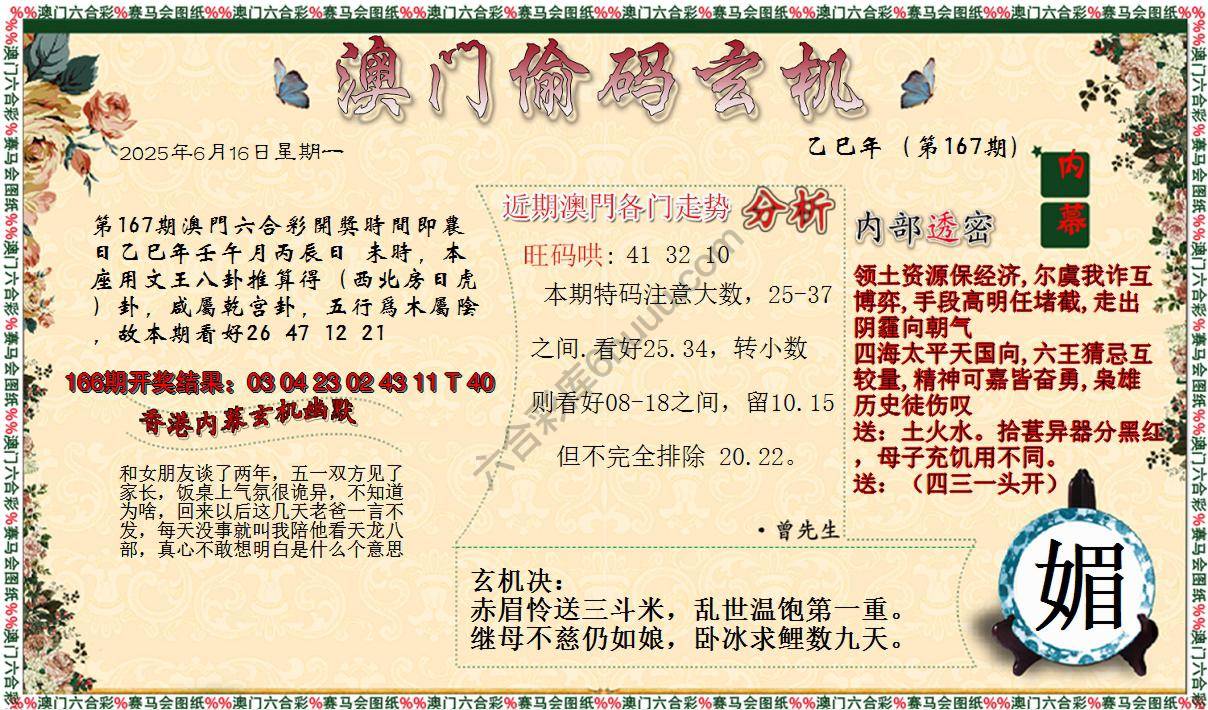 %%澳门六合彩%赛马会图纸%%澳门六合彩%赛马会图纸%%澳门六合彩%赛马会图纸%%澳门六合彩%赛马会图纸%%澳门六合彩%赛马会图纸%%澳门六合彩%赛马会图纸%%
澳门偷码玄机
2025年6月16日星期一
乙巳年（第167期）
内幕
第167期澳門六合彩開獎時間即農
日乙巳年壬午月丙辰日 未時，本
座用文王八卦推算得（西北房日虎
）卦，咸屬乾宫卦，五行爲木屬陰
，故本期看好26 47 12 21
166期开奖结果：03 04 23 02 43 11 T 40
香港内幕玄机幽默
和女朋友谈了两年，五一双方见了
家长，饭桌上气氛很诡异，不知道
为啥，回来以后这几天老爸一言不
发，每天没事就叫我陪他看天龙八
部，真心不敢想明白是什么个意思
近期澳門各门走势 分析
旺码哄: 41 32 10
本期特码注意大数，25-37
之间.看好25.34，转小数
则看好08-18之间，留10.15
但不完全排除 20.22。
·曾先生
内部透密
领土资源保经济,尔虞我诈互
博弈,手段高明任堵截,走出
阴霾向朝气
四海太平天国向,六王猜忌互
较量,精神可嘉皆奋勇,枭雄
历史徒伤叹
送：土火水。拾葚异器分黑红
，母子充饥用不同。
送：（四三一头开）
玄机决：
赤眉怜送三斗米，乱世温饱第一重。
继母不慈仍如娘，卧冰求鲤数九天。
媚
%%澳门六合彩%赛马会图纸%%澳门六合彩%赛马会图纸%%澳门六合彩%赛马会图纸%%澳门六合彩%赛马会图纸%%澳门六合彩%赛马会图纸%%澳门六合彩%赛马会图纸%%